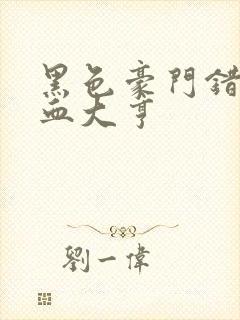 黑色豪門錯
血大亨
劉一偉